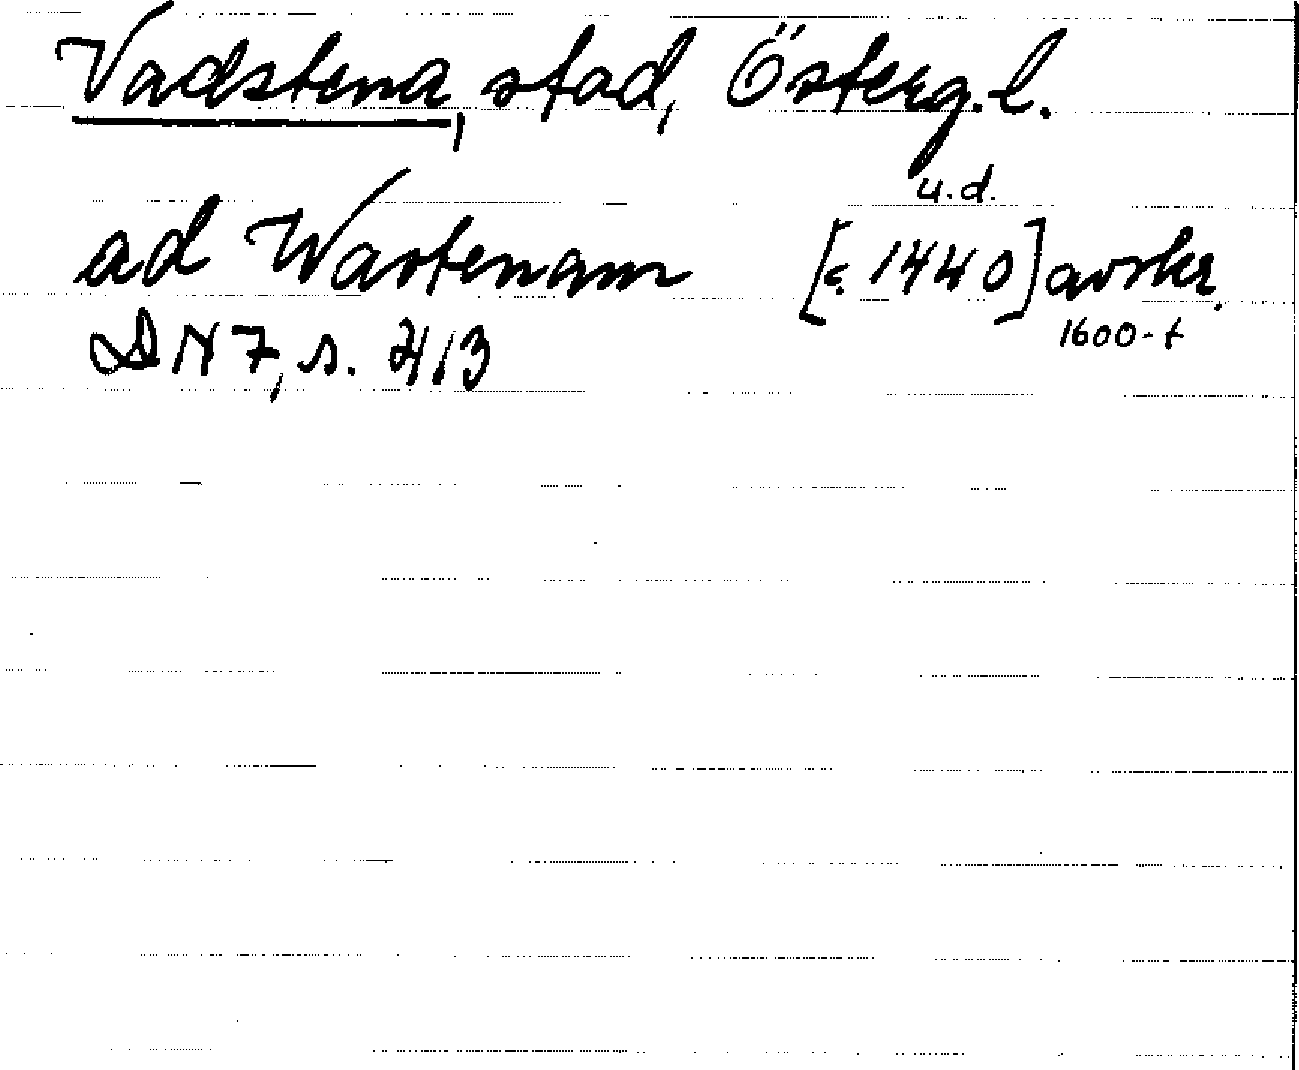 Vadstena, stad, Österg.l.
u.d.
ad Wastenam [c. 1440] avskr.
DN 7, s. 413 1600-t